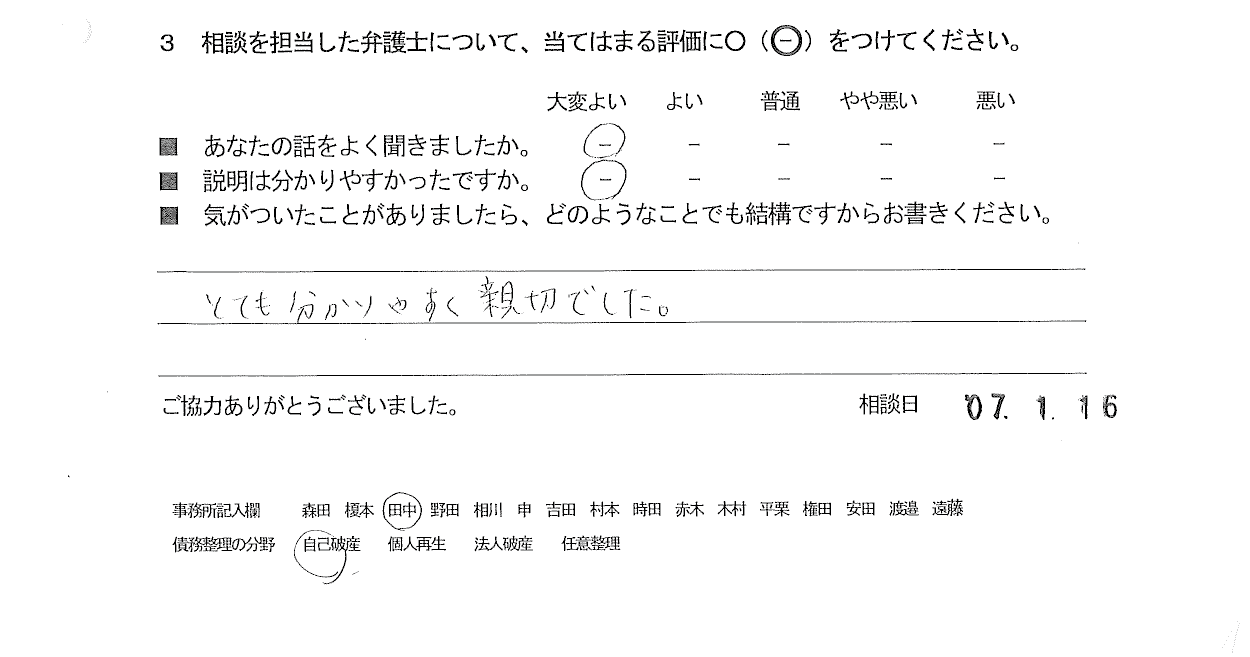 3 相談を担当した弁護士について、当てはまる評価に○（㊀）をつけてください。
大変よい よい 普通 やや悪い 悪い
■ あなたの話をよく聞きましたか。 － － － － －
■ 説明は分かりやすかったですか。 － － － － －
■ 気がついたことがありましたら、どのようなことでも結構ですからお書きください。
とても分かりやすく親切でした。
ご協力ありがとうございました。 相談日 '07. 1. 16
事務所記入欄 森田 榎本 田中 野田 相川 申 吉田 村本 時田 赤木 木村 平栗 権田 安田 渡邉 遠藤
債務整理の分野 自己破産 個人再生 法人破産 任意整理